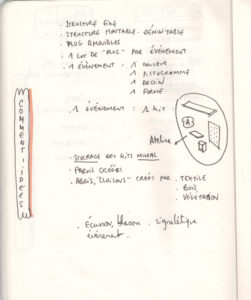 COMMENT : IDÉES
. STRUCTURE FIXE
. STRUCTURE MONTABLE. DÉMONTABLE
. PLUG AMOVIBLES
. 1 LOT DE "PLUG" PAR ÉVÉNEMENT
. 1 ÉVÉNEMENT : 1 COULEUR
1 PICTOGRAMME
1 DESSIN
1 FORME
. 1 ÉVÉNEMENT : 1 KIT
A
Atelier
. STOCKAGE DES KITS MURAL
. PAROIS CRÉÉES
. ABRIS, CLOISONS - CRÉÉS PAR . TEXTILE
. BOIS
. VÉGÉTATION
. Écusson, blason : signalétique
événement.